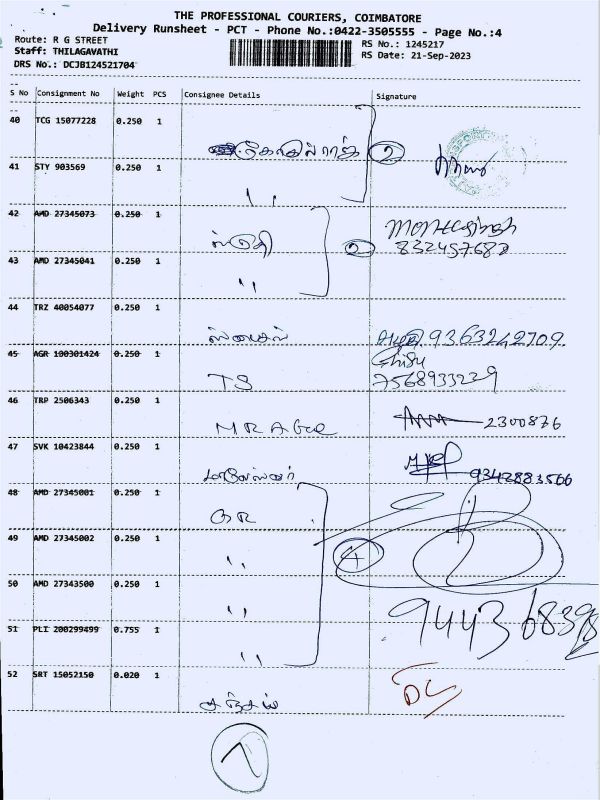 THE PROFESSIONAL COURIERS, COIMBATORE
Delivery Runsheet - PCT - Phone No.:0422-3505555 - Page No.:4
Route: R G STREET
RS No.: 1245217
Staff: THILAGAVATHI
RS Date: 21-Sep-2023
DRS No.: DCJB124521704
S No Consignment No Weight PCS Consignee Details Signature
40 TCG 15077228 0.250 1
2
41 STY 903569 0.250 1
" 
42 AMD 27345073 0.250 1
2
832457682
43 AMD 27345041 0.250 1
"
44 TRZ 40054077 0.250 1
9363242709
45 AGR 100301424 0.250 1
TS 7568933229
46 TRP 2506343 0.250 1
2300876
47 SVK 10423844 0.250 1
9342883566
48 AMD 27345001 0.250 1
GR
49 AMD 27345002 0.250 1
" 4
50 AMD 27343500 0.250 1
"
51 PLI 200299499 0.755 1
"
52 SRT 15052150 0.020 1
DC
7